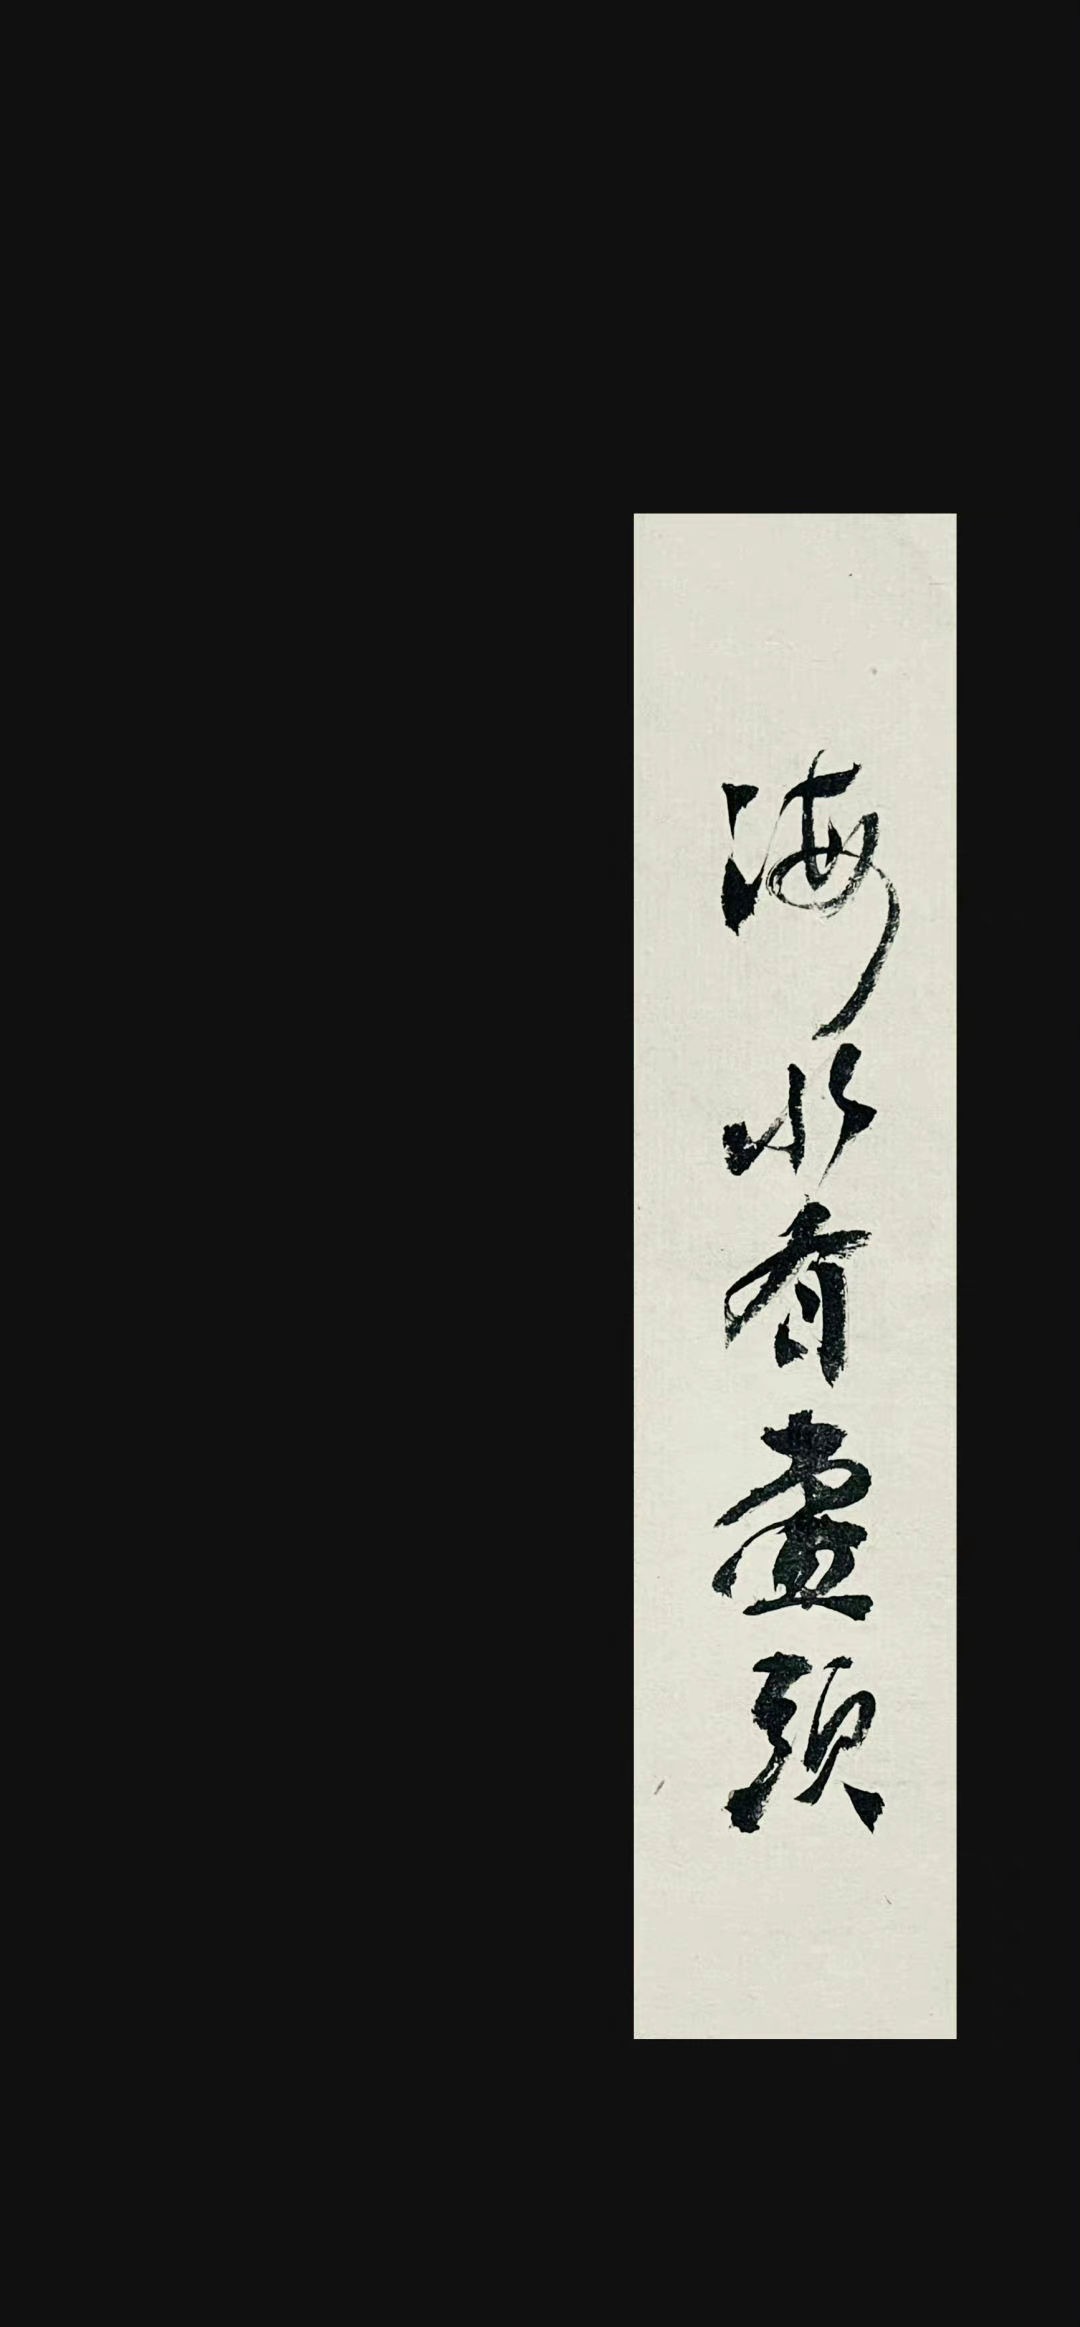 海水有盡頭